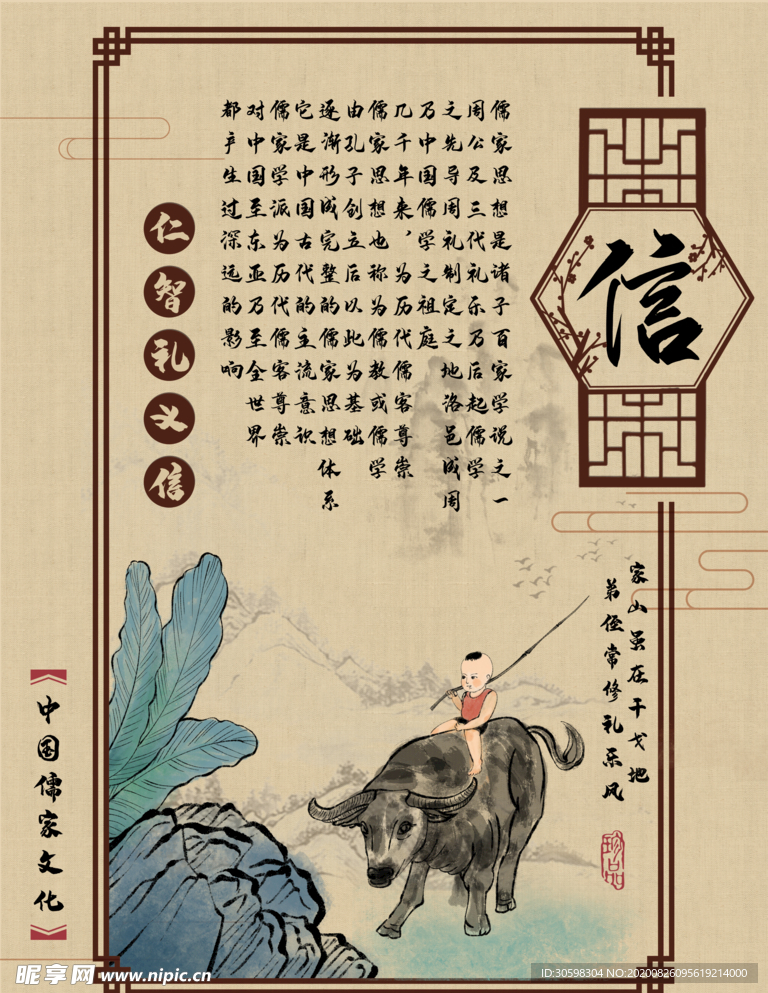 信
儒家思想是诸子百家学说之一
周公及三代礼乐乃后起儒学
之先导周礼制定之地洛邑成周
乃中国儒学之祖庭
几千年来，为历代儒客尊崇
儒家思想也称为儒教或儒学
由孔子创立后以此为基础
逐渐形成完整的儒家思想体系
它是中国古代的主流意识
儒家学派为历代儒客尊崇
对中国至东亚乃至全世界
都产生过深远的影响
仁
智
礼
义
信
家山虽在干戈地
弟侄常修礼乐风
珍品
中国儒家文化
昵享网 www.nipic.cn
ID:30598304 NO:20200826095619214000